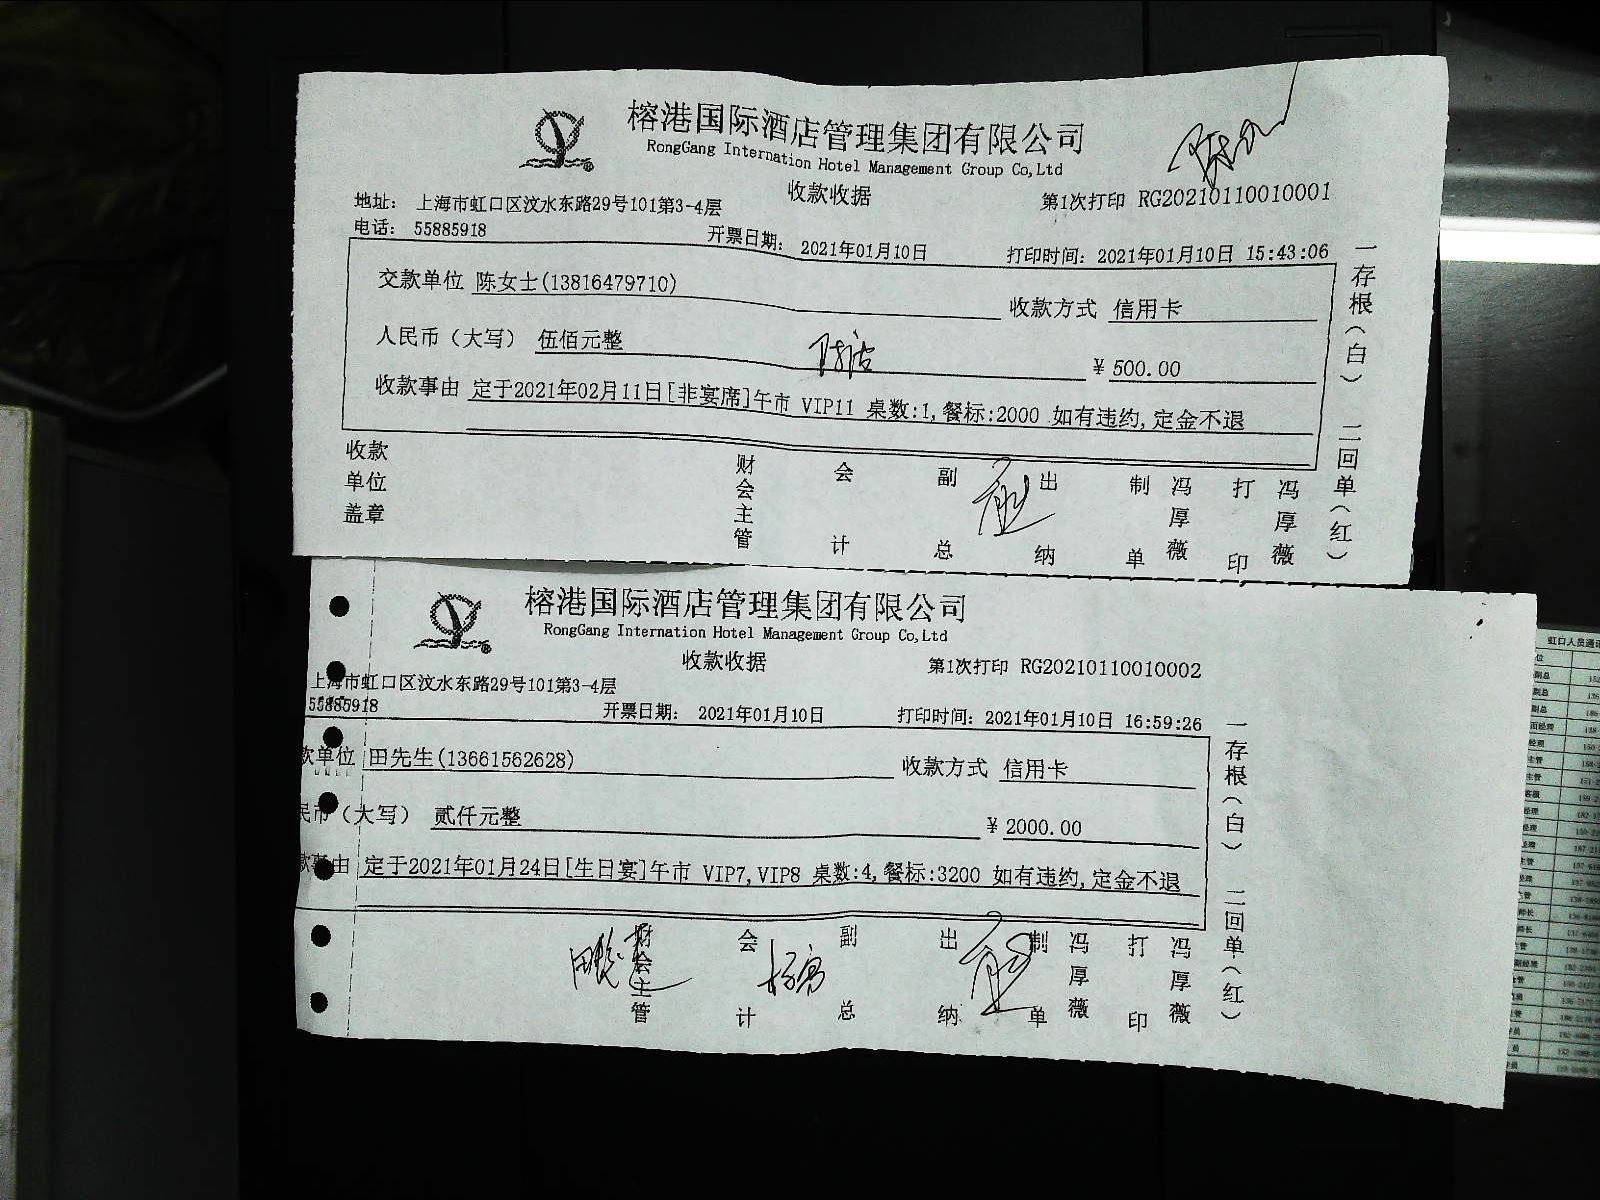 榕港国际酒店管理集团有限公司
RongGang Internation Hotel Management Group Co,Ltd
收款收据
第1次打印 RG20210110010001
地址： 上海市虹口区汶水东路29号101第3-4层
电话： 55885918
开票日期： 2021年01月10日
打印时间：2021年01月10日 15:43:06
交款单位 陈女士(13816479710)
收款方式 信用卡
人民币（大写） 伍佰元整
￥500.00
收款事由 定于2021年02月11日[非宴席]午市 VIP11 桌数:1,餐标:2000 如有违约,定金不退
收款单位盖章
财会主管
会计
副总
出纳
制单 冯厚薇
打印 冯厚薇
一存根（白） 二回单（红）
榕港国际酒店管理集团有限公司
RongGang Internation Hotel Management Group Co,Ltd
收款收据
第1次打印 RG20210110010002
上海市虹口区汶水东路29号101第3-4层
55885918
开票日期： 2021年01月10日
打印时间：2021年01月10日 16:59:26
款单位 田先生(13661562628)
收款方式 信用卡
民币（大写） 贰仟元整
￥2000.00
款事由 定于2021年01月24日[生日宴]午市 VIP7,VIP8 桌数:4,餐标:3200 如有违约,定金不退
财会主管
会计
副总
出纳
制单 冯厚薇
打印 冯厚薇
一存根（白） 二回单（红）
虹口人员通讯